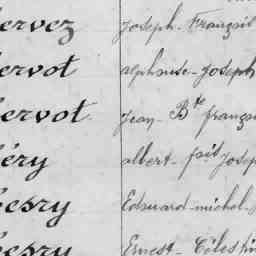 ervez Joseph - Françoi
ervot alphonse - Joseph
ervot Jean Bte françoi
éry albert - Joseph
esry Edouard - michel
esry Ernest - Célestin